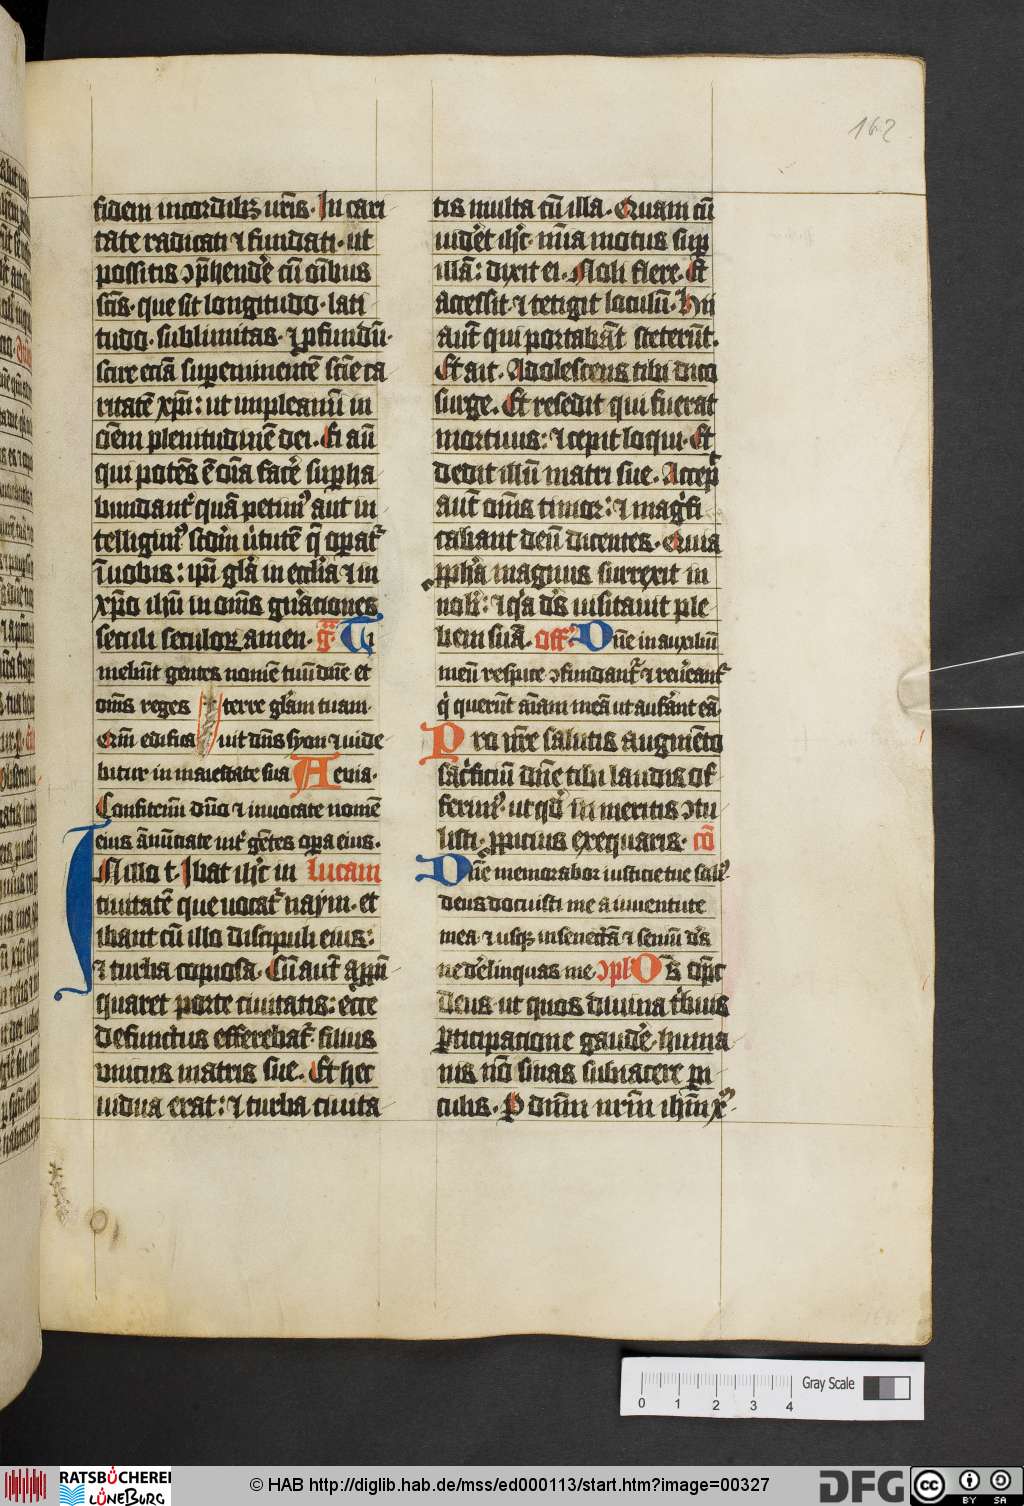 162
fidem in cordibꝫ vr̄is · In cari
tate radicati ⁊ fundati · ut
possitis ꝯp̄hend'e cū oībus
sc̄is · que sit longitudo · lati
tudo · sublimitas · ⁊ ꝓfundū ·
scire eciā suꝑeminentē scīe ca
ritatē xp̄i : ut impleamī in
oēm plenitudinē dei · Ei aū
qui potēs ē oīa fac'e suꝑha
bundant' quā petim⁹ aut in
telligim⁹ scd'm v'tutē q̄ oꝑat'
ī uobis : ip̄i gl'a in eccl'ia ⁊ in
xp̄o ih̄u in om̄s gn'aciones
seculi seculoꝝ amen · gͬ Ti
mebūt gentes nomē tuū dn̄e et
om̄s reges terre gl'am tuam ·
Qm̄ edifica uit dn̄s syon ⁊ uide
bitur in maiestate sua Aeuia ·
Confitemī dn̄o ⁊ inuocate nomē
eius ānūciate int' gētes oꝑa eius ·
In illo t · Ibat ih̄c in Lucam
ciuitatē que uocat' naym · et
ibant cū illo discipuli eius :
⁊ turba copiosa · Cū aut̄ appī
quaret porte ciuitatis : ecce
defunctus efferebat' · filius
unicus matris sue · Et hec
uidua erat : ⁊ turba ciuita
tis multa cū illa · Quam cū
uid'et ih̄c · mīa motus suꝑ
illā : dixit ei · Noli flere · Et
accessit · ⁊ tetigit loculū · Hii
aut̄ qui portabāt steterūt ·
Et ait · Adolescens tibi dico
surge · Et resedit qui fuerat
mortuus : ⁊ cepit loqui · Et
dedit illū matri sue · Accep̄
aut̄ om̄s timor : ⁊ mag'fi
cabant deū dicentes · Quia
ꝓph'a magnus surrexit in
nob' : ⁊ q'a d's uisitauit ple
bem suā · Off' Dn̄e in auxiliū
meū respice ꝯfundant' ⁊ reu'eant'
q' querūt aīam meā ut aufāt eā
Pro nr̄e salutis augmēto
sac'ficiū dn̄e tibi laudis of
ferim⁹ · ut qd' in meritis ꝯtu
listi · ꝓpicius exequaris · Cō
Dn̄e memorabor iusticie tue soli⁹
deus docuisti me a iuuentute
mea · ⁊ usqꝫ in senectā ⁊ seniū d's
ne d'elinquas me · ꝯpl' Om̄s op̄c
deus · ut quos diuina t'buis
ꝑticipacione gaud'e · huma
nis nō sinas subiacere ꝑi
culis · P dn̄m nr̄m ih̄m x⁹ ·
Gray Scale
0 1 2 3 4
RATSBÜCHEREI
LÜNEBURG
© HAB http://diglib.hab.de/mss/ed000113/start.htm?image=00327
DFG
cc BY SA